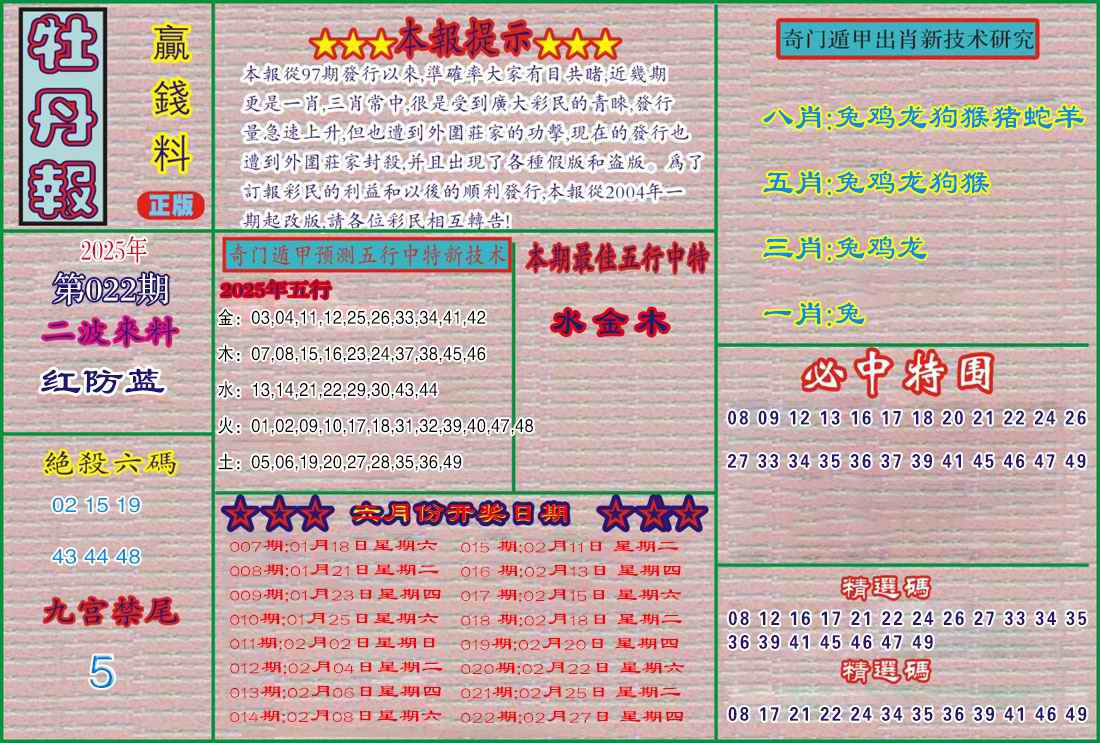 牡丹報
贏錢料
正版
★★★本報提示★★★
本報從97期發行以來,準確率大家有目共睹,近幾期
更是一肖,三肖常中,很是受到廣大彩民的青睞,發行
量急速上升,但也遭到外圍莊家的功擊,現在的發行也
遭到外圍莊家封殺,并且出現了各種假版和盗版。爲了
訂報彩民的利益和以後的順利發行,本報從2004年一
期起改版,請各位彩民相互轉告!
奇门遁甲出肖新技术研究
八肖:兔鸡龙狗猴猪蛇羊
五肖:兔鸡龙狗猴
三肖:兔鸡龙
一肖:兔
2025年
第022期
二波來料
红防蓝
奇门遁甲预测五行中特新技术
2025年五行
金：03,04,11,12,25,26,33,34,41,42
木：07,08,15,16,23,24,37,38,45,46
水：13,14,21,22,29,30,43,44
火：01,02,09,10,17,18,31,32,39,40,47,48
土：05,06,19,20,27,28,35,36,49
本期最佳五行中特
水金木
必中特围
08 09 12 13 16 17 18 20 21 22 24 26
27 33 34 35 36 37 39 41 45 46 47 49
絕殺六碼
02 15 19
43 44 48
九宫禁尾
5
☆☆☆六月份开奖日期☆☆☆
007期:01月18日星期六 015期:02月11日 星期二
008期:01月21日星期二 016期:02月13日 星期四
009期:01月23日星期四 017期:02月15日 星期六
010期:01月25日星期六 018期:02月18日 星期二
011期:02月02日星期日 019期:02月20日 星期四
012期:02月04日星期二 020期:02月22日 星期六
013期:02月06日星期四 021期:02月25日 星期二
014期:02月08日星期六 022期:02月27日 星期四
精選碼
08 12 16 17 21 22 24 26 27 33 34 35
36 39 41 45 46 47 49
精選碼
08 17 21 22 24 34 35 36 39 41 46 49